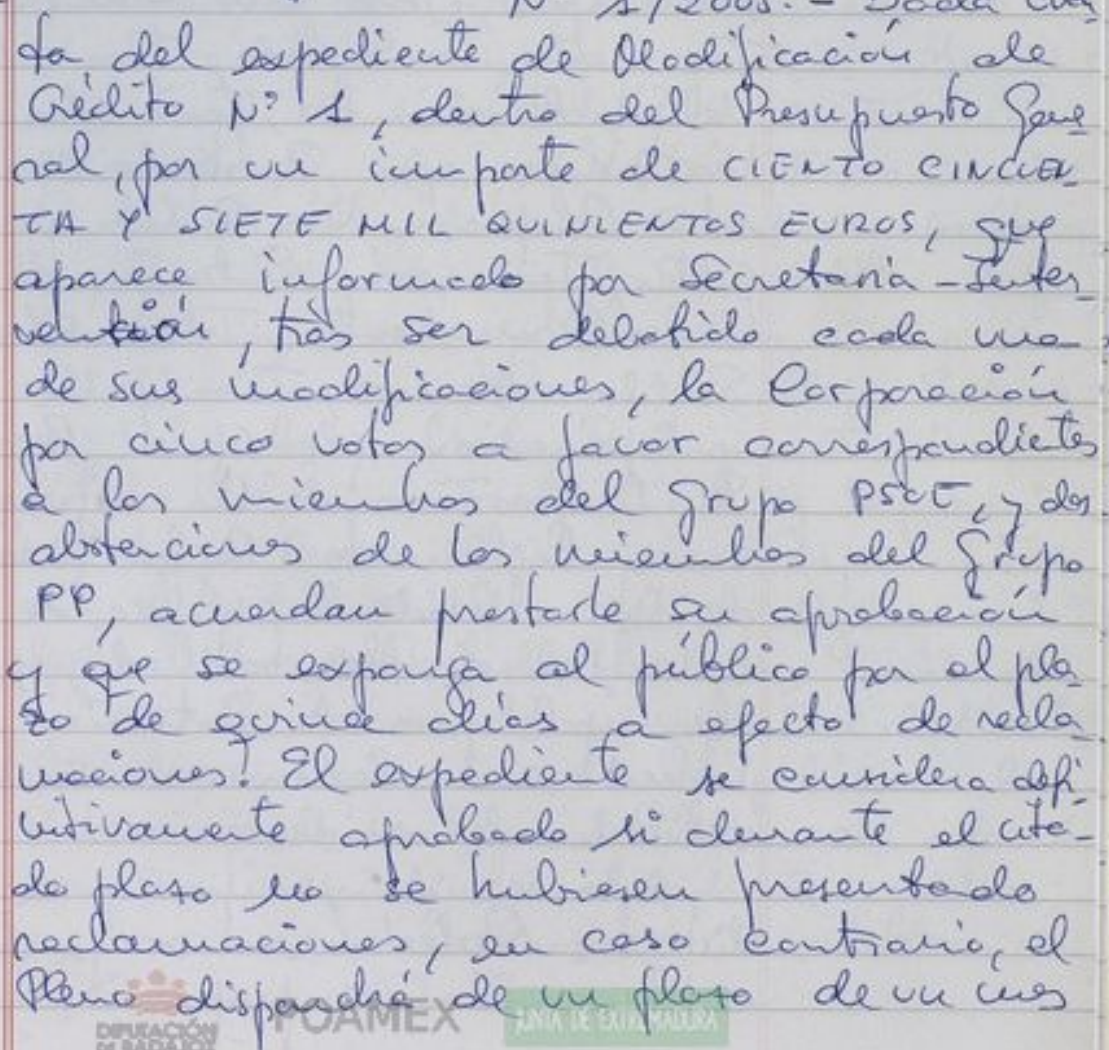 Nº 1/2005.- Dada cuen
ta del expediente de Modificación de
Crédito Nº 1, dentro del Presupuesto Gene
ral, por un importe de CIENTO CINCUEN
TA Y SIETE MIL QUINIENTOS EUROS, que
aparece informado por Secretaría-Inter
vención, trás ser debatido cada una
de sus modificaciones, la Corporación
por cinco votos a favor correspondientes
a los miembros del Grupo PSOE, y dos
abstenciones de los miembros del Grupo
PP, acuerdan prestarle su aprobación
y que se exponga al público por el pla
zo de quince días a efecto de recla
maciones. El expediente se considera defi
nitivamente aprobado si durante el cita-
do plazo no se hubiesen presentado
reclamaciones, en caso contrario, el
Pleno dispondrá de un plazo de un mes
DIPUTACIÓN
DE BADAJOZ
FOAMEX
JUNTA DE EXTREMADURA